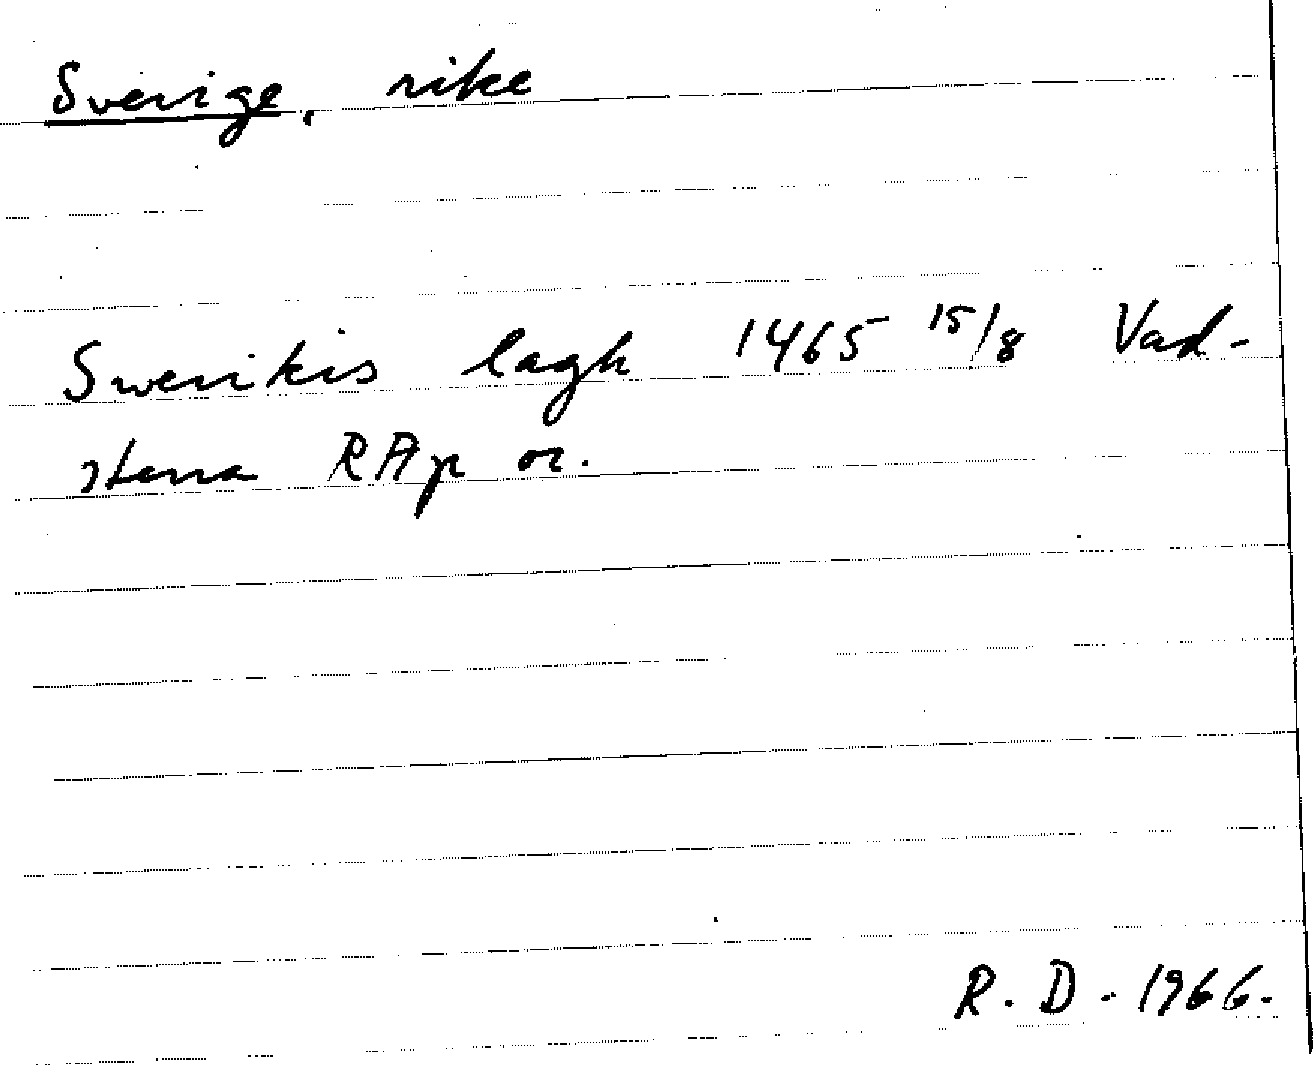 Sverige, rike
Swerikis lagh 1465 15/8 Vad-
stena RAp or.
R. D. 1966.